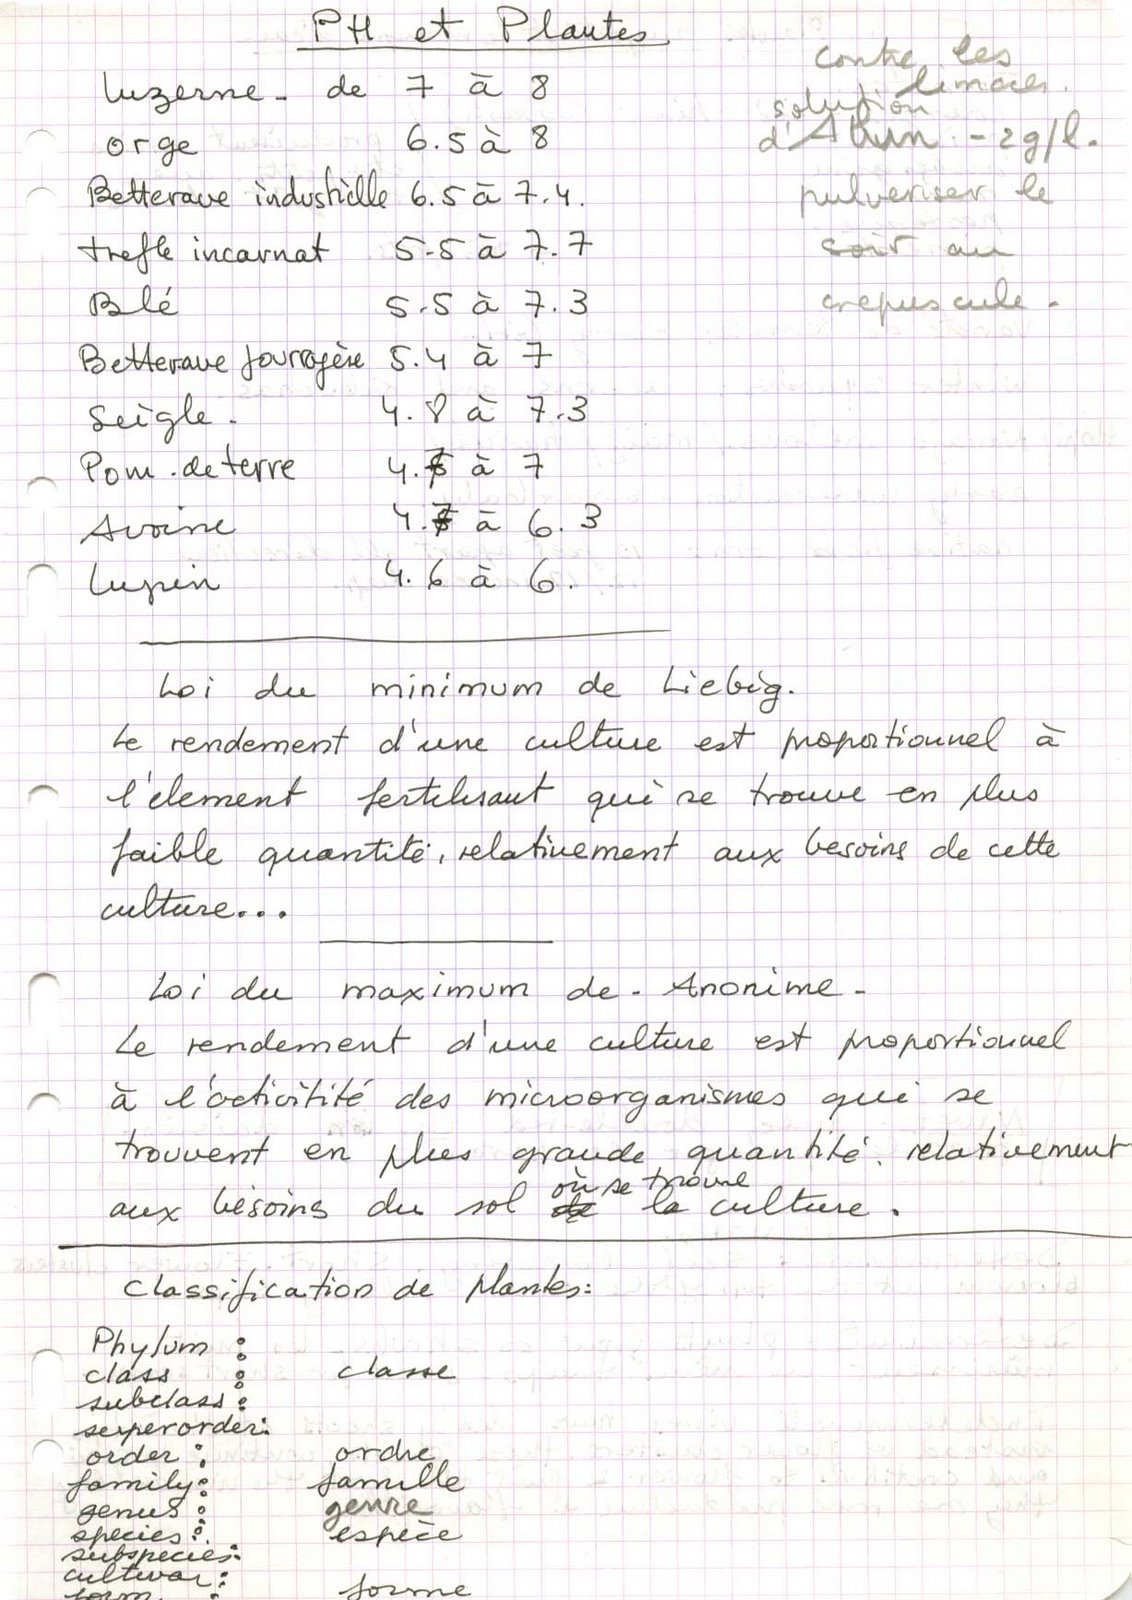 PH et Plantes
luzerne - de 7 à 8
orge 6.5 à 8
Betterave industrielle 6.5 à 7.4.
trefle incarnat 5.5 à 7.7
Blé 5.5 à 7.3
Betterave fourragère 5.4 à 7
Seigle. 4.8 à 7.3
Pom. de terre 4. à 7
Avoine 4. à 6.3
Lupin 4.6 à 6.
contre les
limaces.
solution
d'Alun - 2g/l.
pulveriser le
soir au
crepuscule.
Loi du minimum de Liebig.
Le rendement d'une culture est proportionnel à
l'élement fertilisant qui se trouve en plus
faible quantité, relativement aux besoins de cette
culture...
Loi du maximum de - Anonime -
Le rendement d'une culture est proportionnel
à l'activitité des microorganismes qui se
trouvent en plus grande quantité. relativement
où se trouve
aux bésoins du sol de la culture.
Classification de Plantes:
Phylum :
class : classe
subclass :
superorder:
order : ordre
family: famille
genus : genre
species : espèce
subspecies:
cultivar :
form : forme